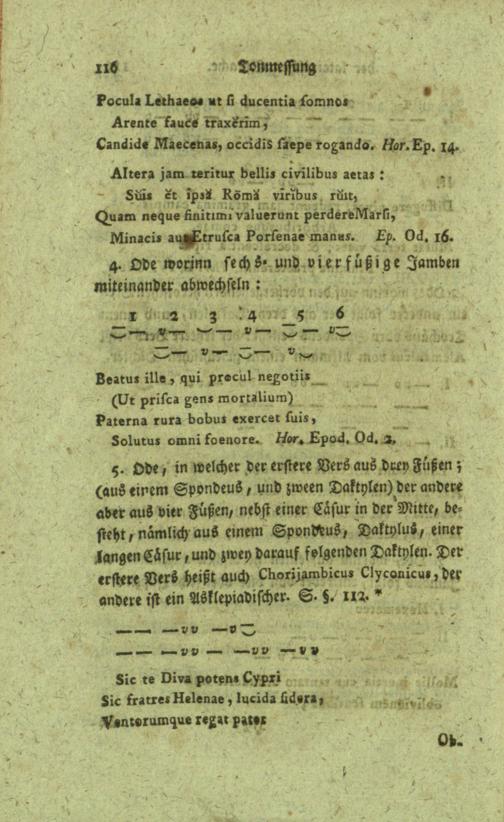 116 Tonmessung
Pocula Lethaeos ut si ducentia somnos
Arente fauce traxĕrĭm,
Candide Maecenas, occidis saepe rogando. Hor. Ep. 14.
Altera jam teritur bellis civilibus aetas:
Sŭis ĕt ĭpsă Rōmă viribus rŭit,
Quam neque finitimi valuerunt perdere Marsi,
Minacis aut Etrusca Porsenae manus. Ep. Od. 16.
4. Ode worinn sechs- und vierfüßige Jamben
miteinander abwechseln:
1 2 3 4 5 6
Beatus ille, qui procul negotiis
(Ut prisca gens mortalium)
Paterna rura bobus exercet suis,
Solutus omni foenore. Hor. Epod. Od. 2.
5. Ode, in welcher der erstere Vers aus drey Füßen;
(aus einem Spondeus, und zween Daktylen) der andere
aber aus vier Füßen, nebst einer Cäsur in der Mitte, be-
steht, nämlich aus einem Spondeus, Daktylus, einer
langen Cäsur, und zwey darauf folgenden Daktylen. Der
erstere Vers heißt auch Chorijambicus Clyconicus, der
andere ist ein Asklepiadischer. S. §. 112. *
— — — v v — v ⏓
— — — v v — — v v — v v
Sic te Diva potens Cypri
Sic fratres Helenae, lucida sidera,
Ventorumque regat pater
Ob-